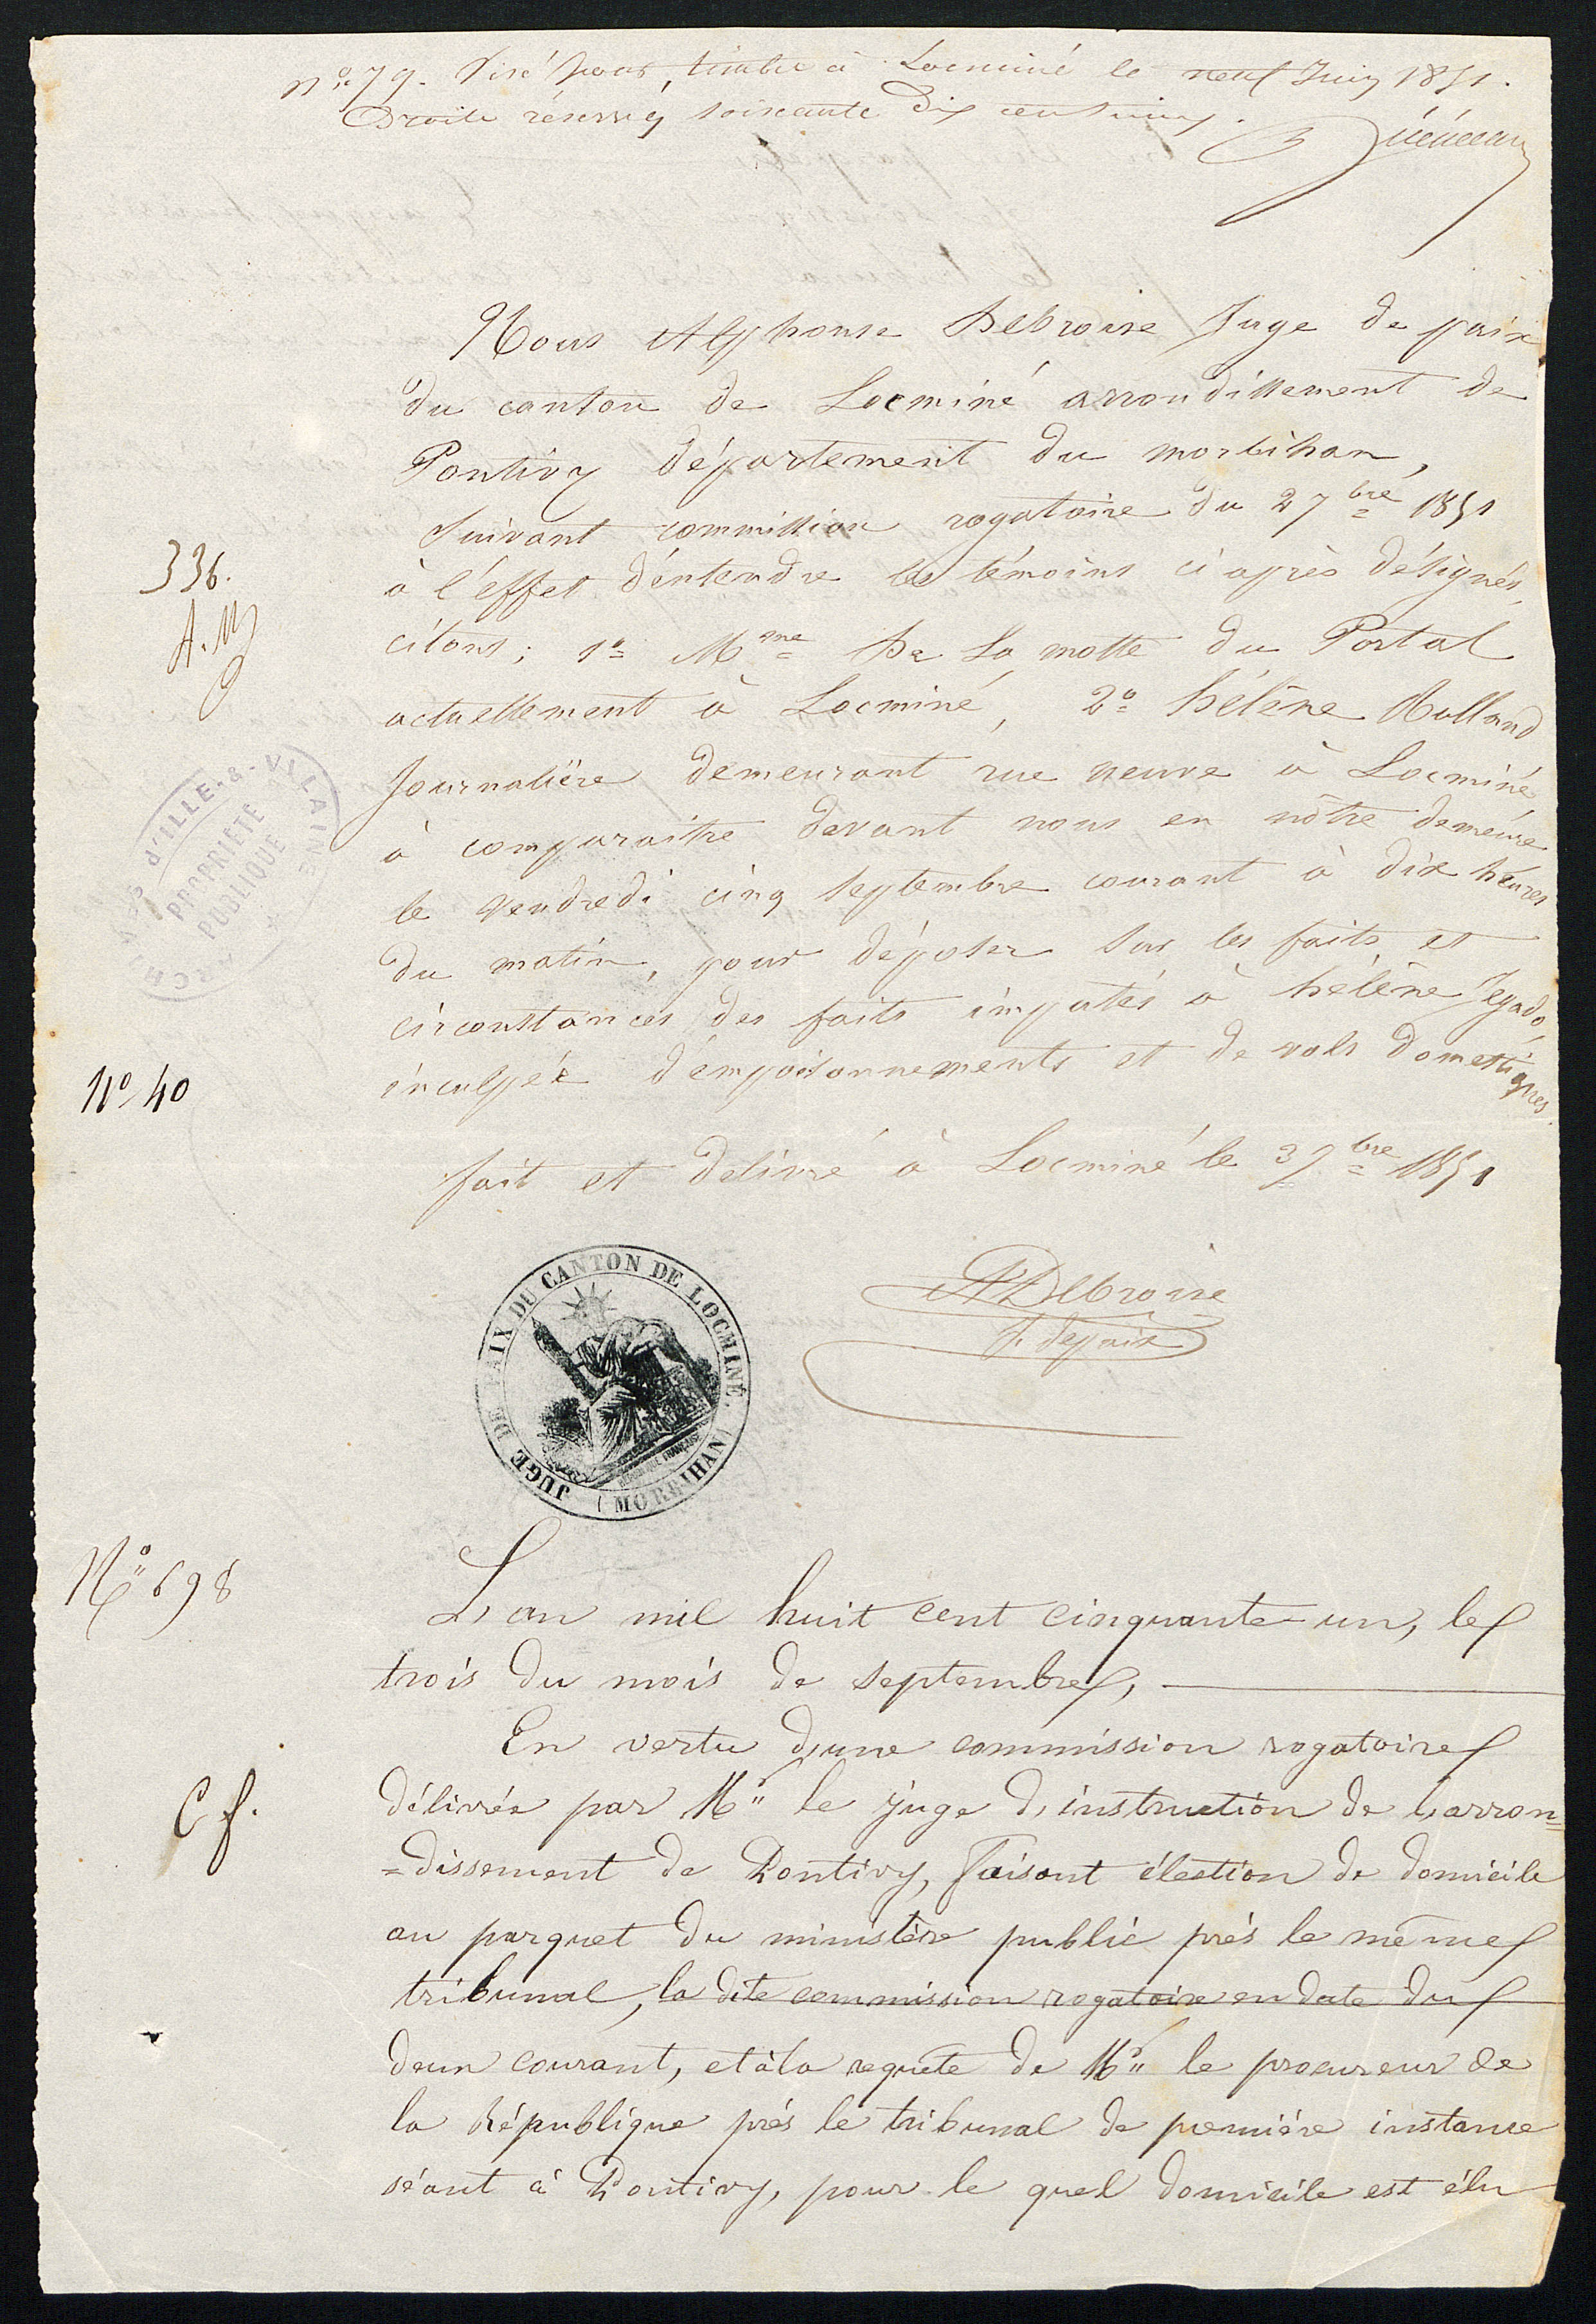 n° 79. Visé pour timbre à Locminé le neuf Juin 1851.
Droits réservés soixante dix centimes.
Nous Alphonse Debroise Juge de paix
du canton de Locminé arrondissement de
Pontivy département du morbihan,
Suivant commission rogatoire du 2 7bre 1851
à l'éffet d'éntendre les témoins ci après désignés,
citons; 1° Mme De La motte du Portal
actuellement à Locminé, 2° hélène Rolland
Journalière demeurant rue neuve à Locminé
à comparaitre devant nous en nôtre deméure
le vendredi cinq septembre courant à dix héures
du matin, pour déposer sur les faits et
circonstances des faits imputés à hélène Jegado,
inculpée d'émpoisonnements et de vols domestiques.
fait et délivré à Locminé le 3 7bre 1851
ADebroise
J. de paix
JUGE DE PAIX DU CANTON DE LOCMINÉ
(MORBIHAN)
336.
A.M
ARCHIVES d'ILLE-&-VILAINE
PROPRIÉTÉ
PUBLIQUE
N° 40
N° 698
L'an mil huit cent cinquante-un, le
trois du mois de septembre,
En vertu d'une commission rogatoire
délivrée par Mr le juge d'instruction de l'arron=
=dissement de Pontivy, faisant élection de domicile
au parquet du ministère public près le même
tribunal, la dite commission rogatoire en date du
deux courant, et à la requête de Mr le procureur de
la République près le tribunal de première instance
séant à Pontivy, pour le quel domicile est élu
C f.